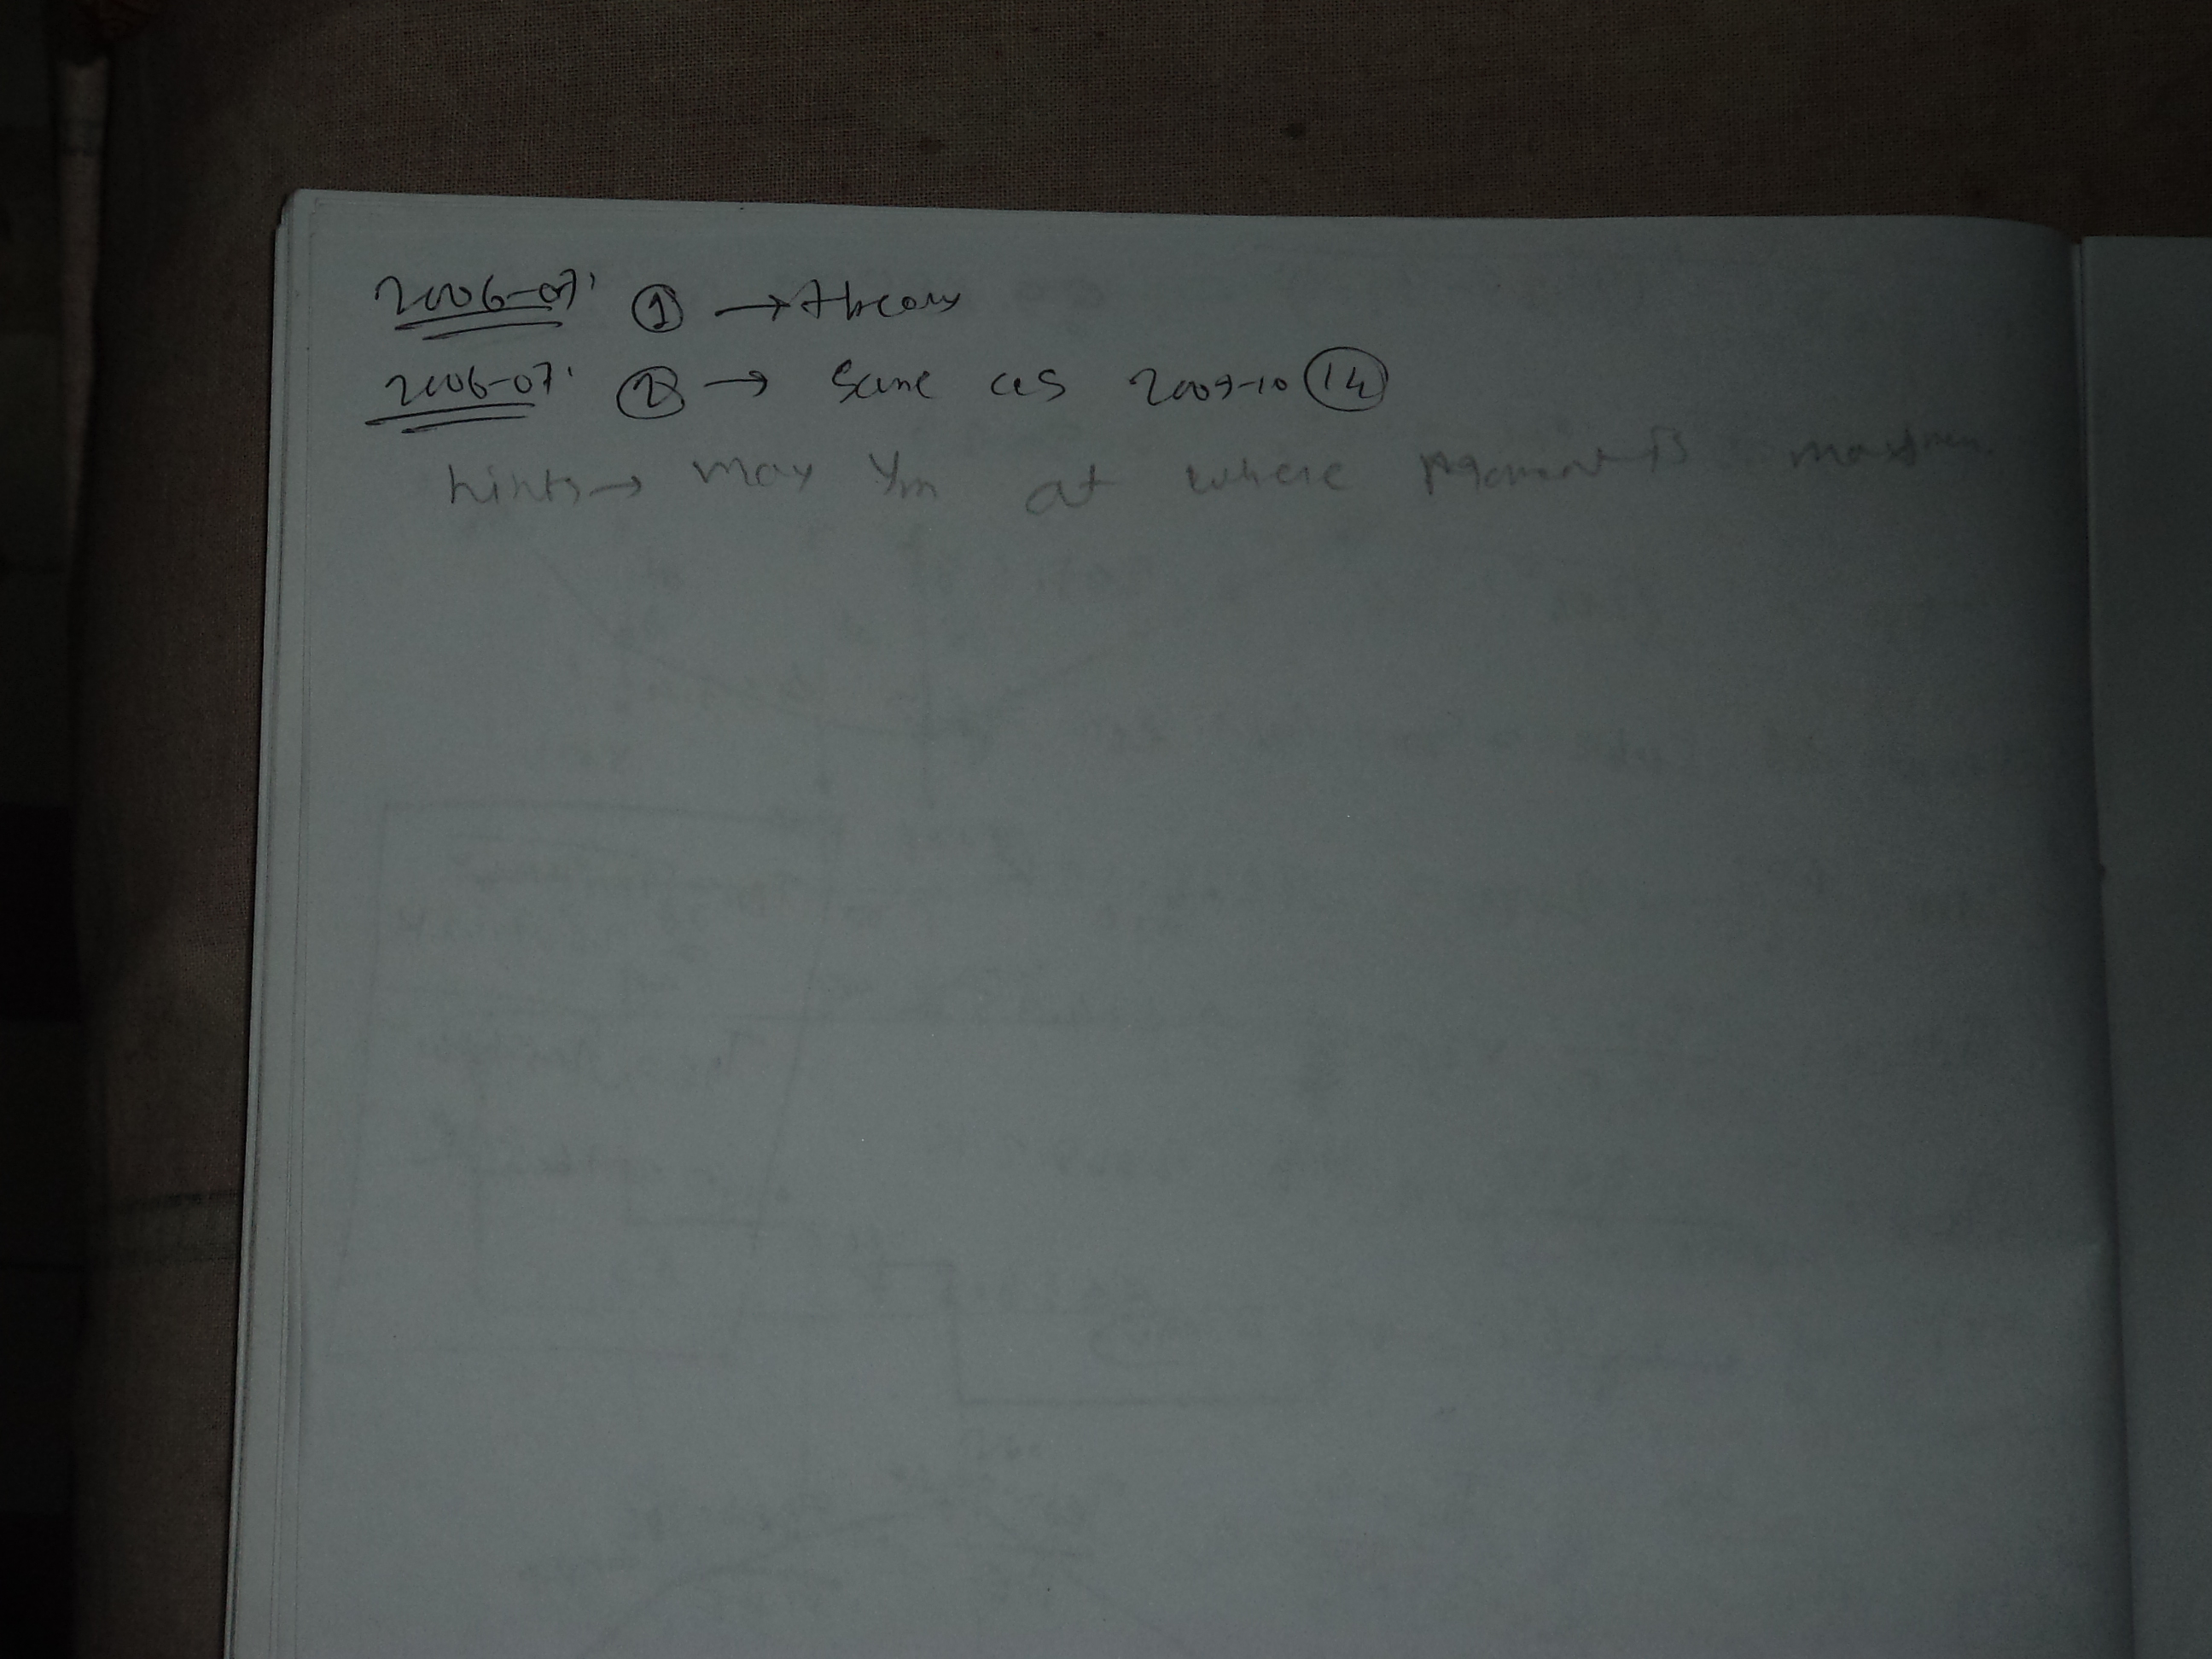 2006-07' ① → theory
2006-07' ② → same as 2009-10 (14)
hints → max Ym at where Moment is maximum